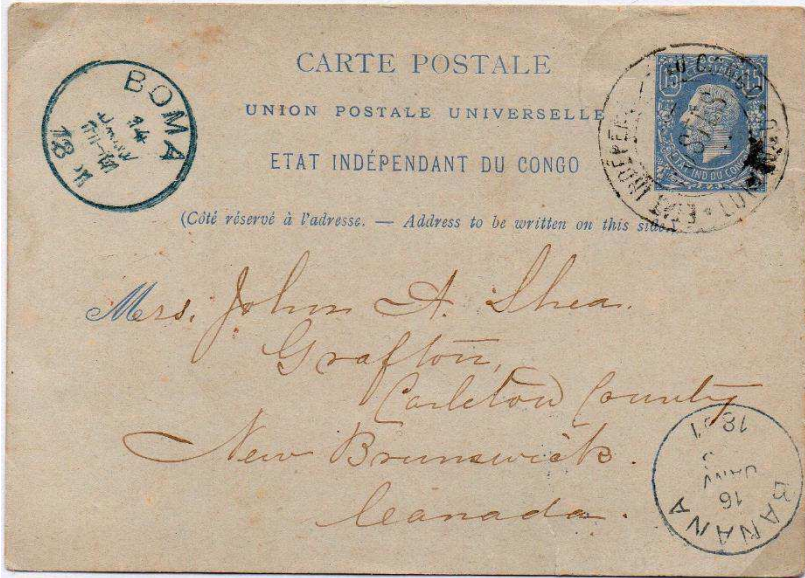 CARTE POSTALE
UNION POSTALE UNIVERSELLE
ETAT INDÉPENDANT DU CONGO
(Côté réservé à l'adresse. — Address to be written on this side
15 15
ETAT IND DU CONGO
BOMA
14
JANV
Mrs. John A. Shea.
Grafton,
Carleton County
New Brunswick.
Canada.
BANANA
16
JANV